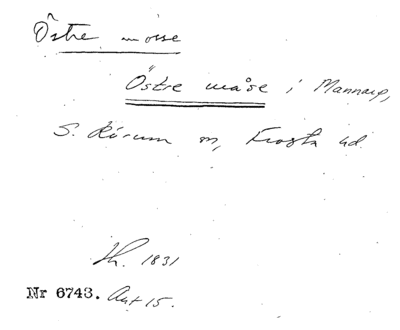 Östre mosse
Östre måse i Mannarp,
S. Rörum sn, Frosta hd.
1831
Nr 6743. Akt 15.